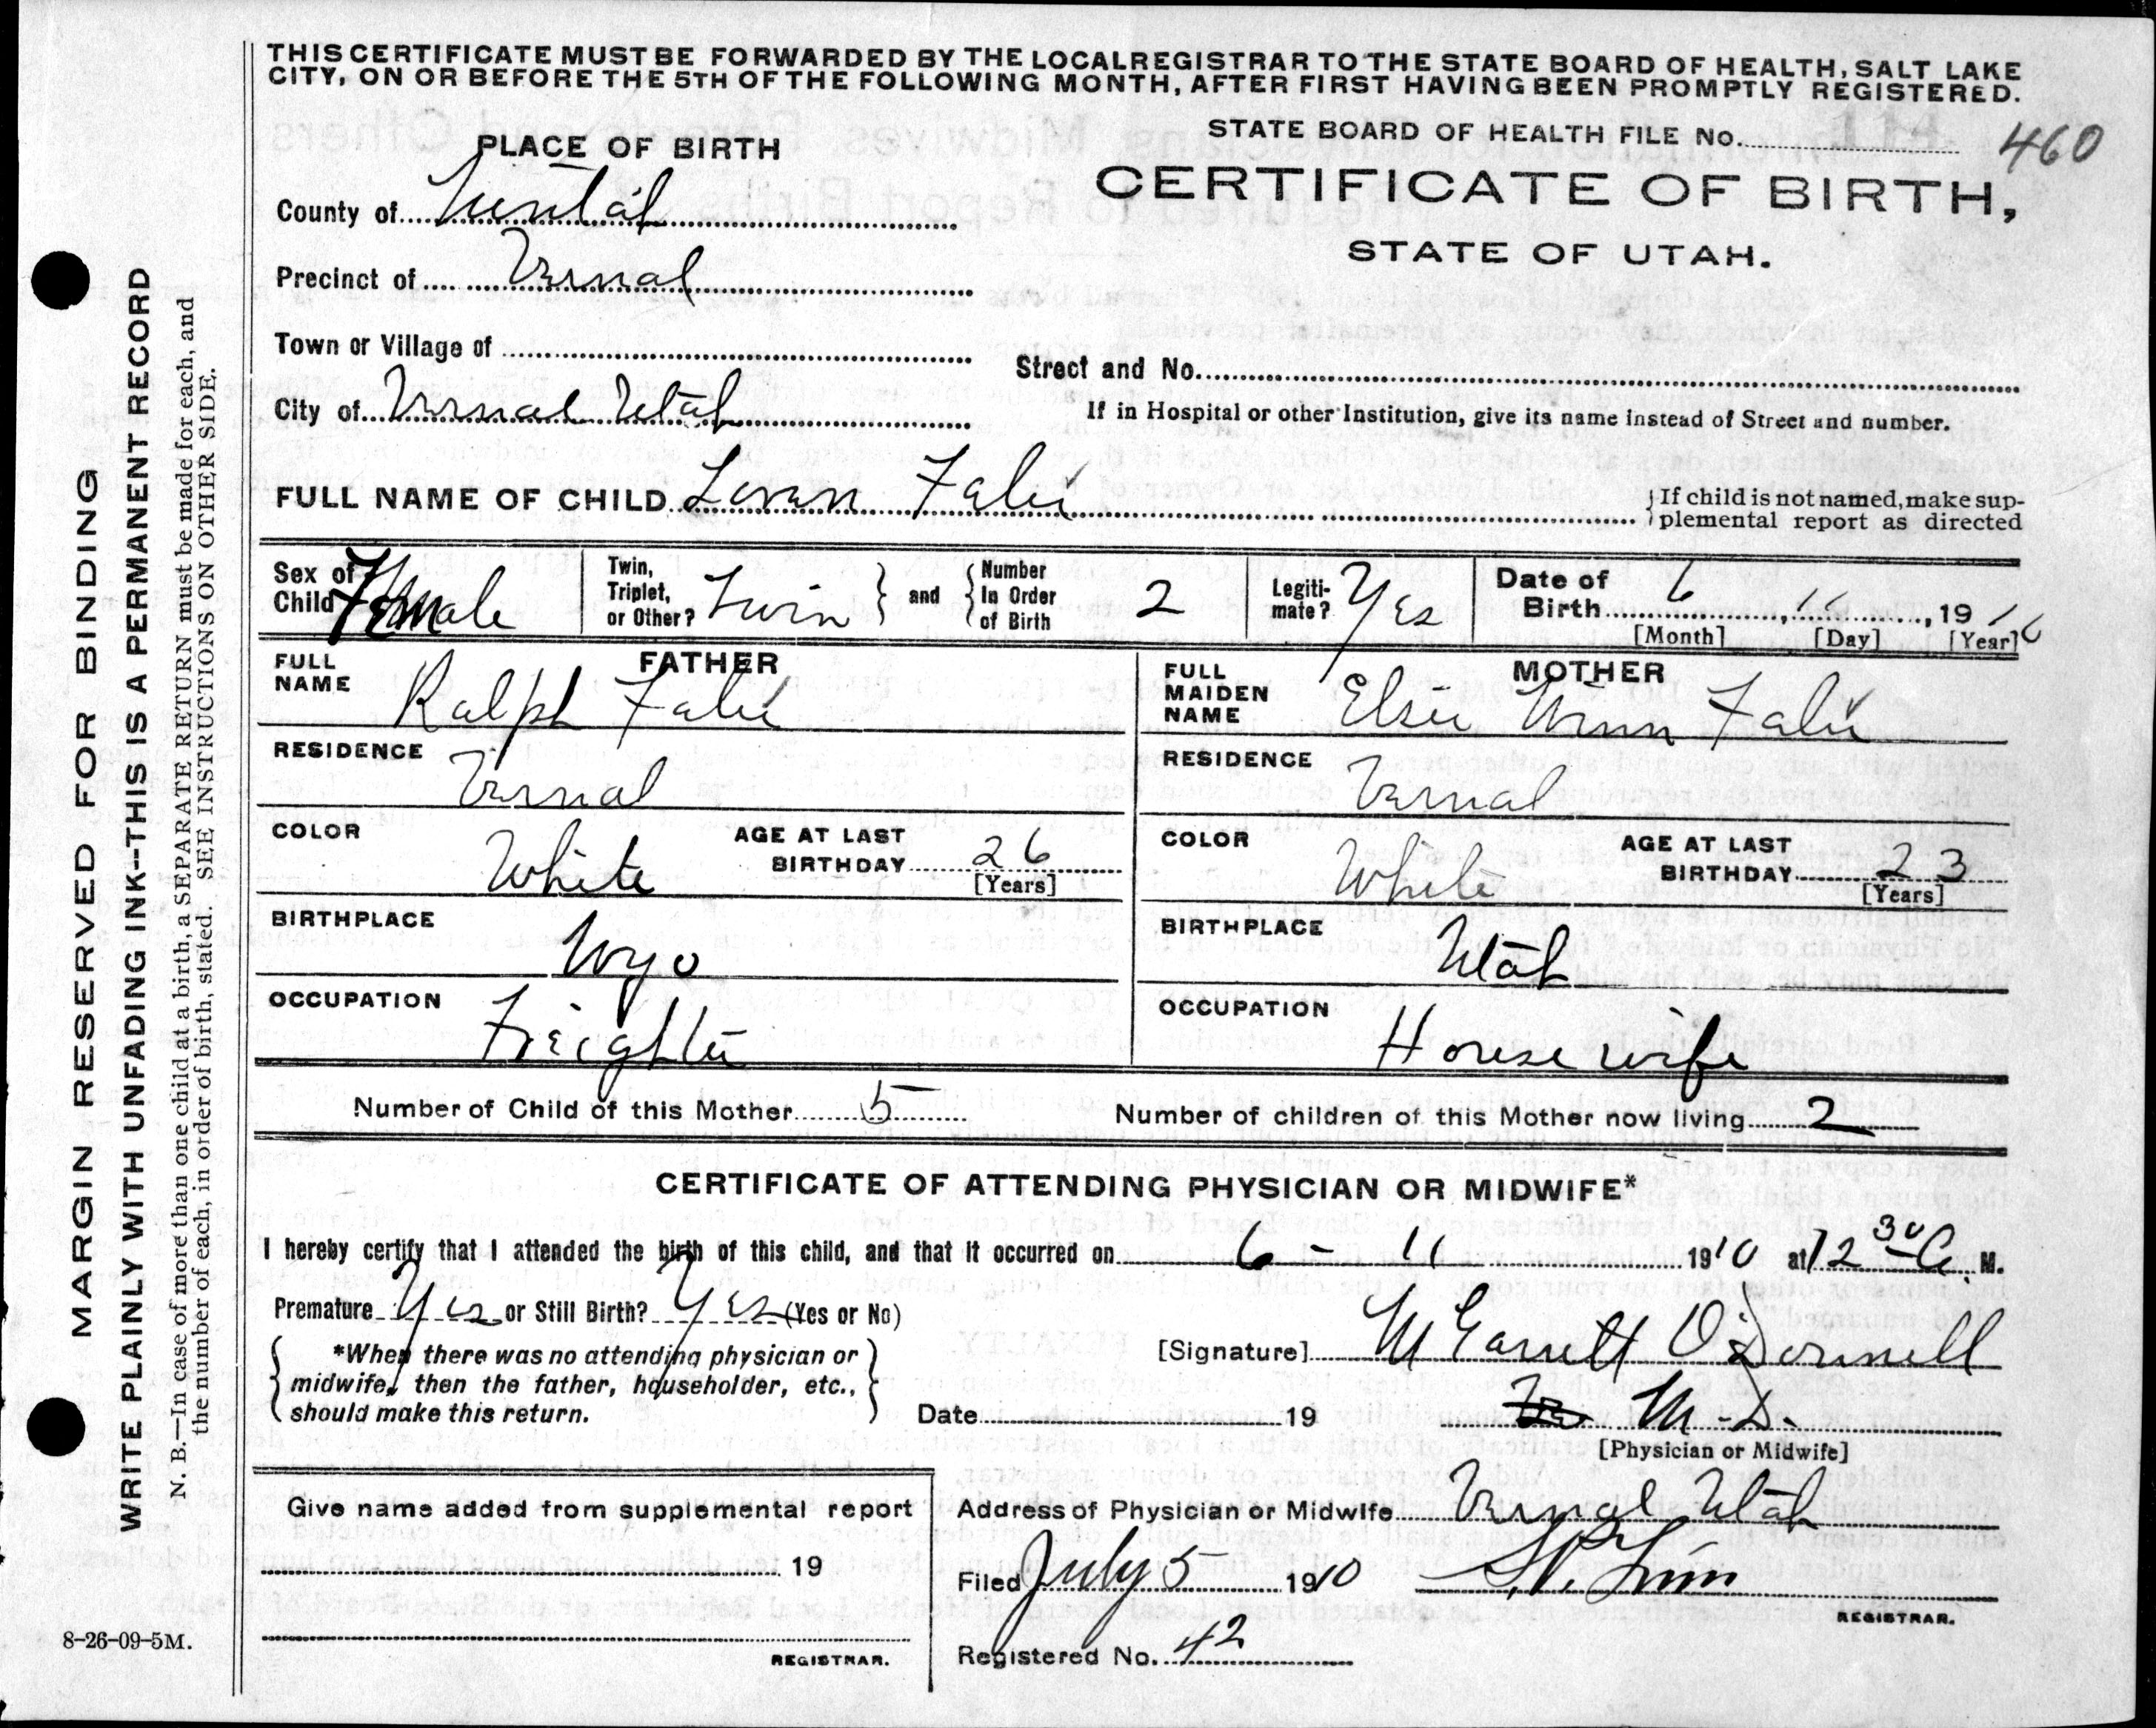 THIS CERTIFICATE MUST BE FORWARDED BY THE LOCAL REGISTRAR TO THE STATE BOARD OF HEALTH, SALT LAKE
CITY, ON OR BEFORE THE 5TH OF THE FOLLOWING MONTH, AFTER FIRST HAVING BEEN PROMPTLY REGISTERED.
STATE BOARD OF HEALTH FILE No. 460
PLACE OF BIRTH
CERTIFICATE OF BIRTH,
STATE OF UTAH.
County of
Precinct of Vernal
Town or Village of
Street and No.
City of Vernal Utah
If in Hospital or other Institution, give its name instead of Street and number.
FULL NAME OF CHILD
If child is not named, make sup-
plemental report as directed
Sex of Child Female
Twin, Triplet, or Other? Twin
and
Number In Order of Birth 2
Legiti-mate? Yes
Date of Birth 6, 11, 19
[Month] [Day] [Year]
FATHER
FULL NAME Ralph
RESIDENCE Vernal
COLOR White
AGE AT LAST BIRTHDAY 26
[Years]
BIRTHPLACE Wyo
OCCUPATION Freighter
MOTHER
FULL MAIDEN NAME Elsie
RESIDENCE Vernal
COLOR White
AGE AT LAST BIRTHDAY 23
[Years]
BIRTHPLACE Utah
OCCUPATION House wife
Number of Child of this Mother 5
Number of children of this Mother now living 2
CERTIFICATE OF ATTENDING PHYSICIAN OR MIDWIFE*
I hereby certify that I attended the birth of this child, and that it occurred on 6 - 11 1910 at 12 30 A. M.
Premature Yes or Still Birth? Yes (Yes or No)
*When there was no attending physician or
midwife, then the father, householder, etc.,
should make this return.
[Signature] O'Donnell
Date 19
M.D.
[Physician or Midwife]
Give name added from supplemental report
19
REGISTRAR.
Address of Physician or Midwife Vernal Utah
Filed July 5 1910
REGISTRAR.
Registered No. 42
8-26-09-5M.
MARGIN RESERVED FOR BINDING
WRITE PLAINLY WITH UNFADING INK--THIS IS A PERMANENT RECORD
N. B.—In case of more than one child at a birth, a SEPARATE RETURN must be made for each, and
the number of each, in order of birth, stated. SEE INSTRUCTIONS ON OTHER SIDE.